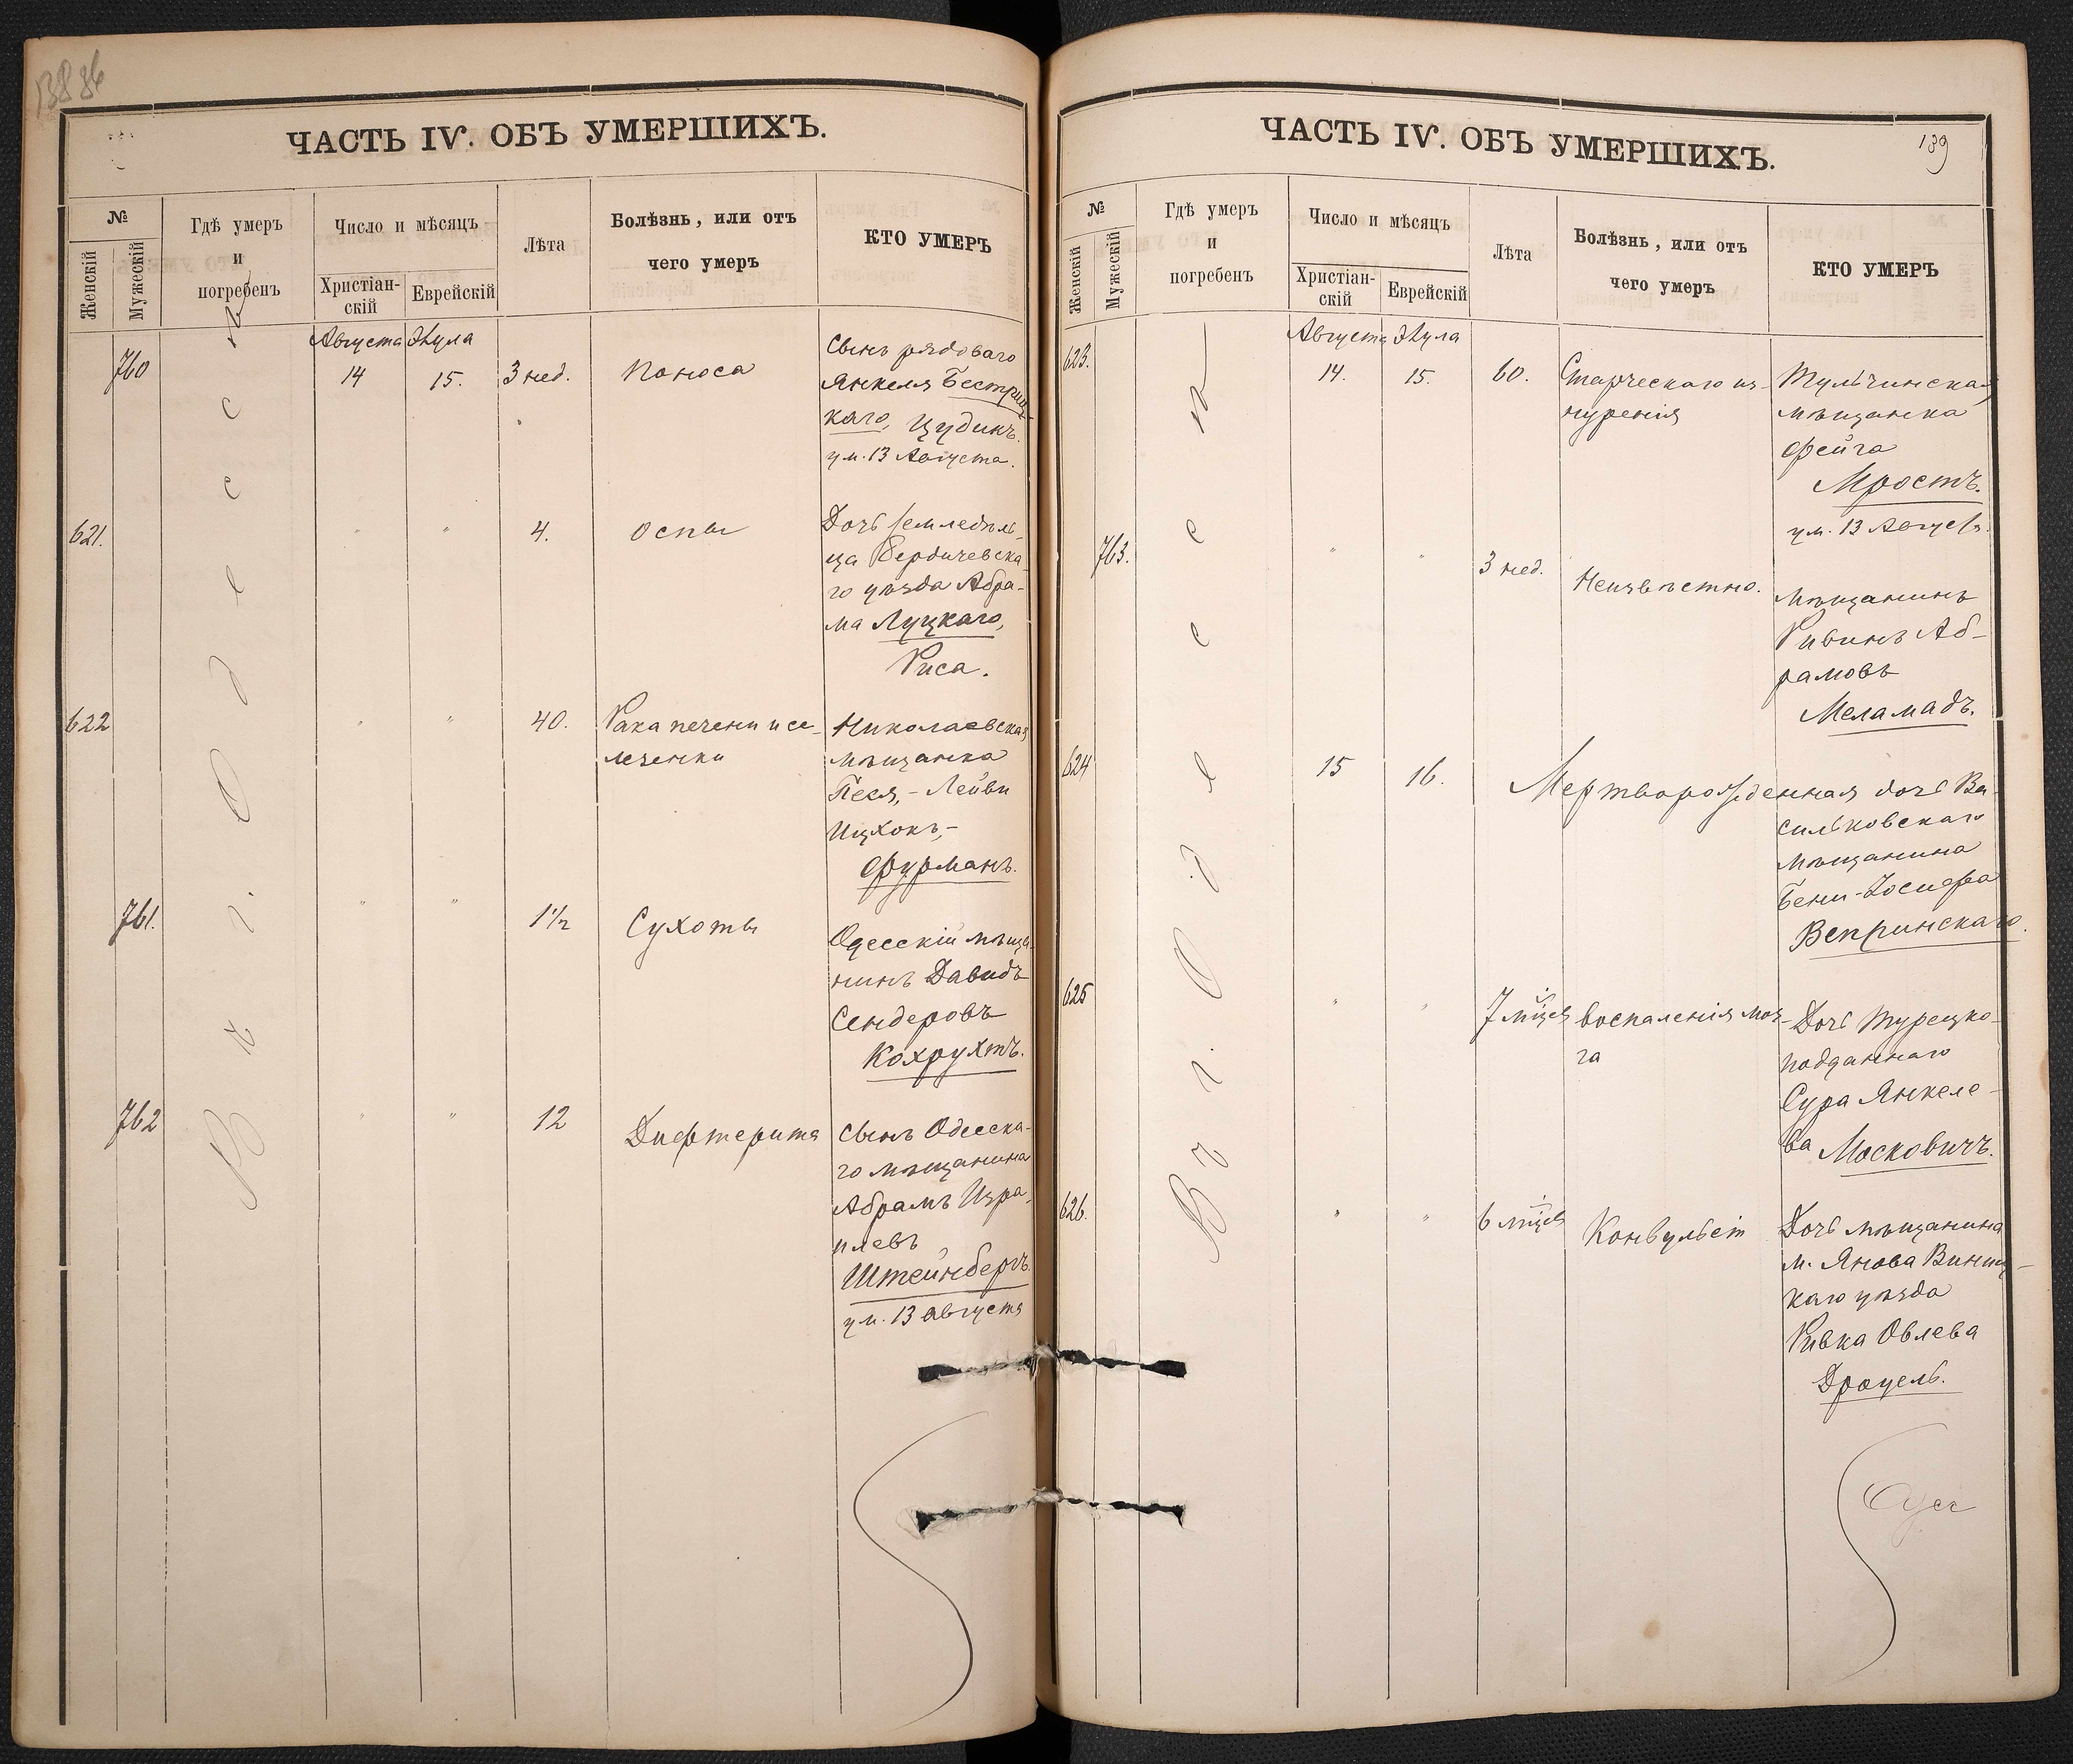 13886
ЧАСТЬ IV. ОБЪ УМЕРШИХЪ.
№
Женскій
Мужескій
Гдѣ умеръ
и
погребенъ
Число и мѣсяцъ
Христіан-
скій
Еврейскій
Лѣта
Болѣзнь, или отъ
чего умеръ
КТО УМЕРЪ
В г. Одессѣ
Августа Элула
760 14 15. 3 нед. Поноса
Сынъ рядоваго
Янкеля Бестриц
каго, Цудикъ.
ум. 13 Августа.
621. " " 4. Оспы
Дочь земледѣль-
ца Бердичевска-
го уѣзда Абра-
ма Луцкаго,
Риса.
622 " " 40. Рака печени и се-
лезенки
Николаевская
мѣщанка
Песя,- Лейви
Ицхокъ,-
Фурманъ.
761. " " 1 1/2 Сухоты
Одесскій мѣща-
нинъ Давидъ
Сендеровъ
Кохрухтъ.
762 " " 12 Дифтерита
Сынъ Одесска-
го мѣщанина
Абрамъ Изра-
илевъ
Штейнбергъ.
ум. 13 августа
ЧАСТЬ IV. ОБЪ УМЕРШИХЪ.
139
№
Женскій
Мужескій
Гдѣ умеръ
и
погребенъ
Число и мѣсяцъ
Христіан-
скій
Еврейскій
Лѣта
Болѣзнь, или отъ
чего умеръ
КТО УМЕРЪ
В г. Одессѣ
Августа Элула
623. 14. 15. 60. Старческаго из-
нуренія
Тульчинская
мѣщанка
Фейга
Мростъ.
ум. 13 Августа.
763. " " 3 нед. Неизвѣстно.
Мѣщанинъ
Ривинъ Аб-
рамовъ
Меламадъ.
624 15 16. Мертворожденная дочь Ва-
сильковскаго
мѣщанина
Бени-Іосифа
Вепринскаго.
625 " " 7 мѣсяц воспаленія моз-
га
Дочь Турецко-
подданнаго
Сура Янкеле-
ва Московичъ.
626. " " 6 мѣсяц Конвульсіи
Дочь мѣщанина
м. Янова Винниц-
каго уѣзда
Ривка Овлева
Драцель.